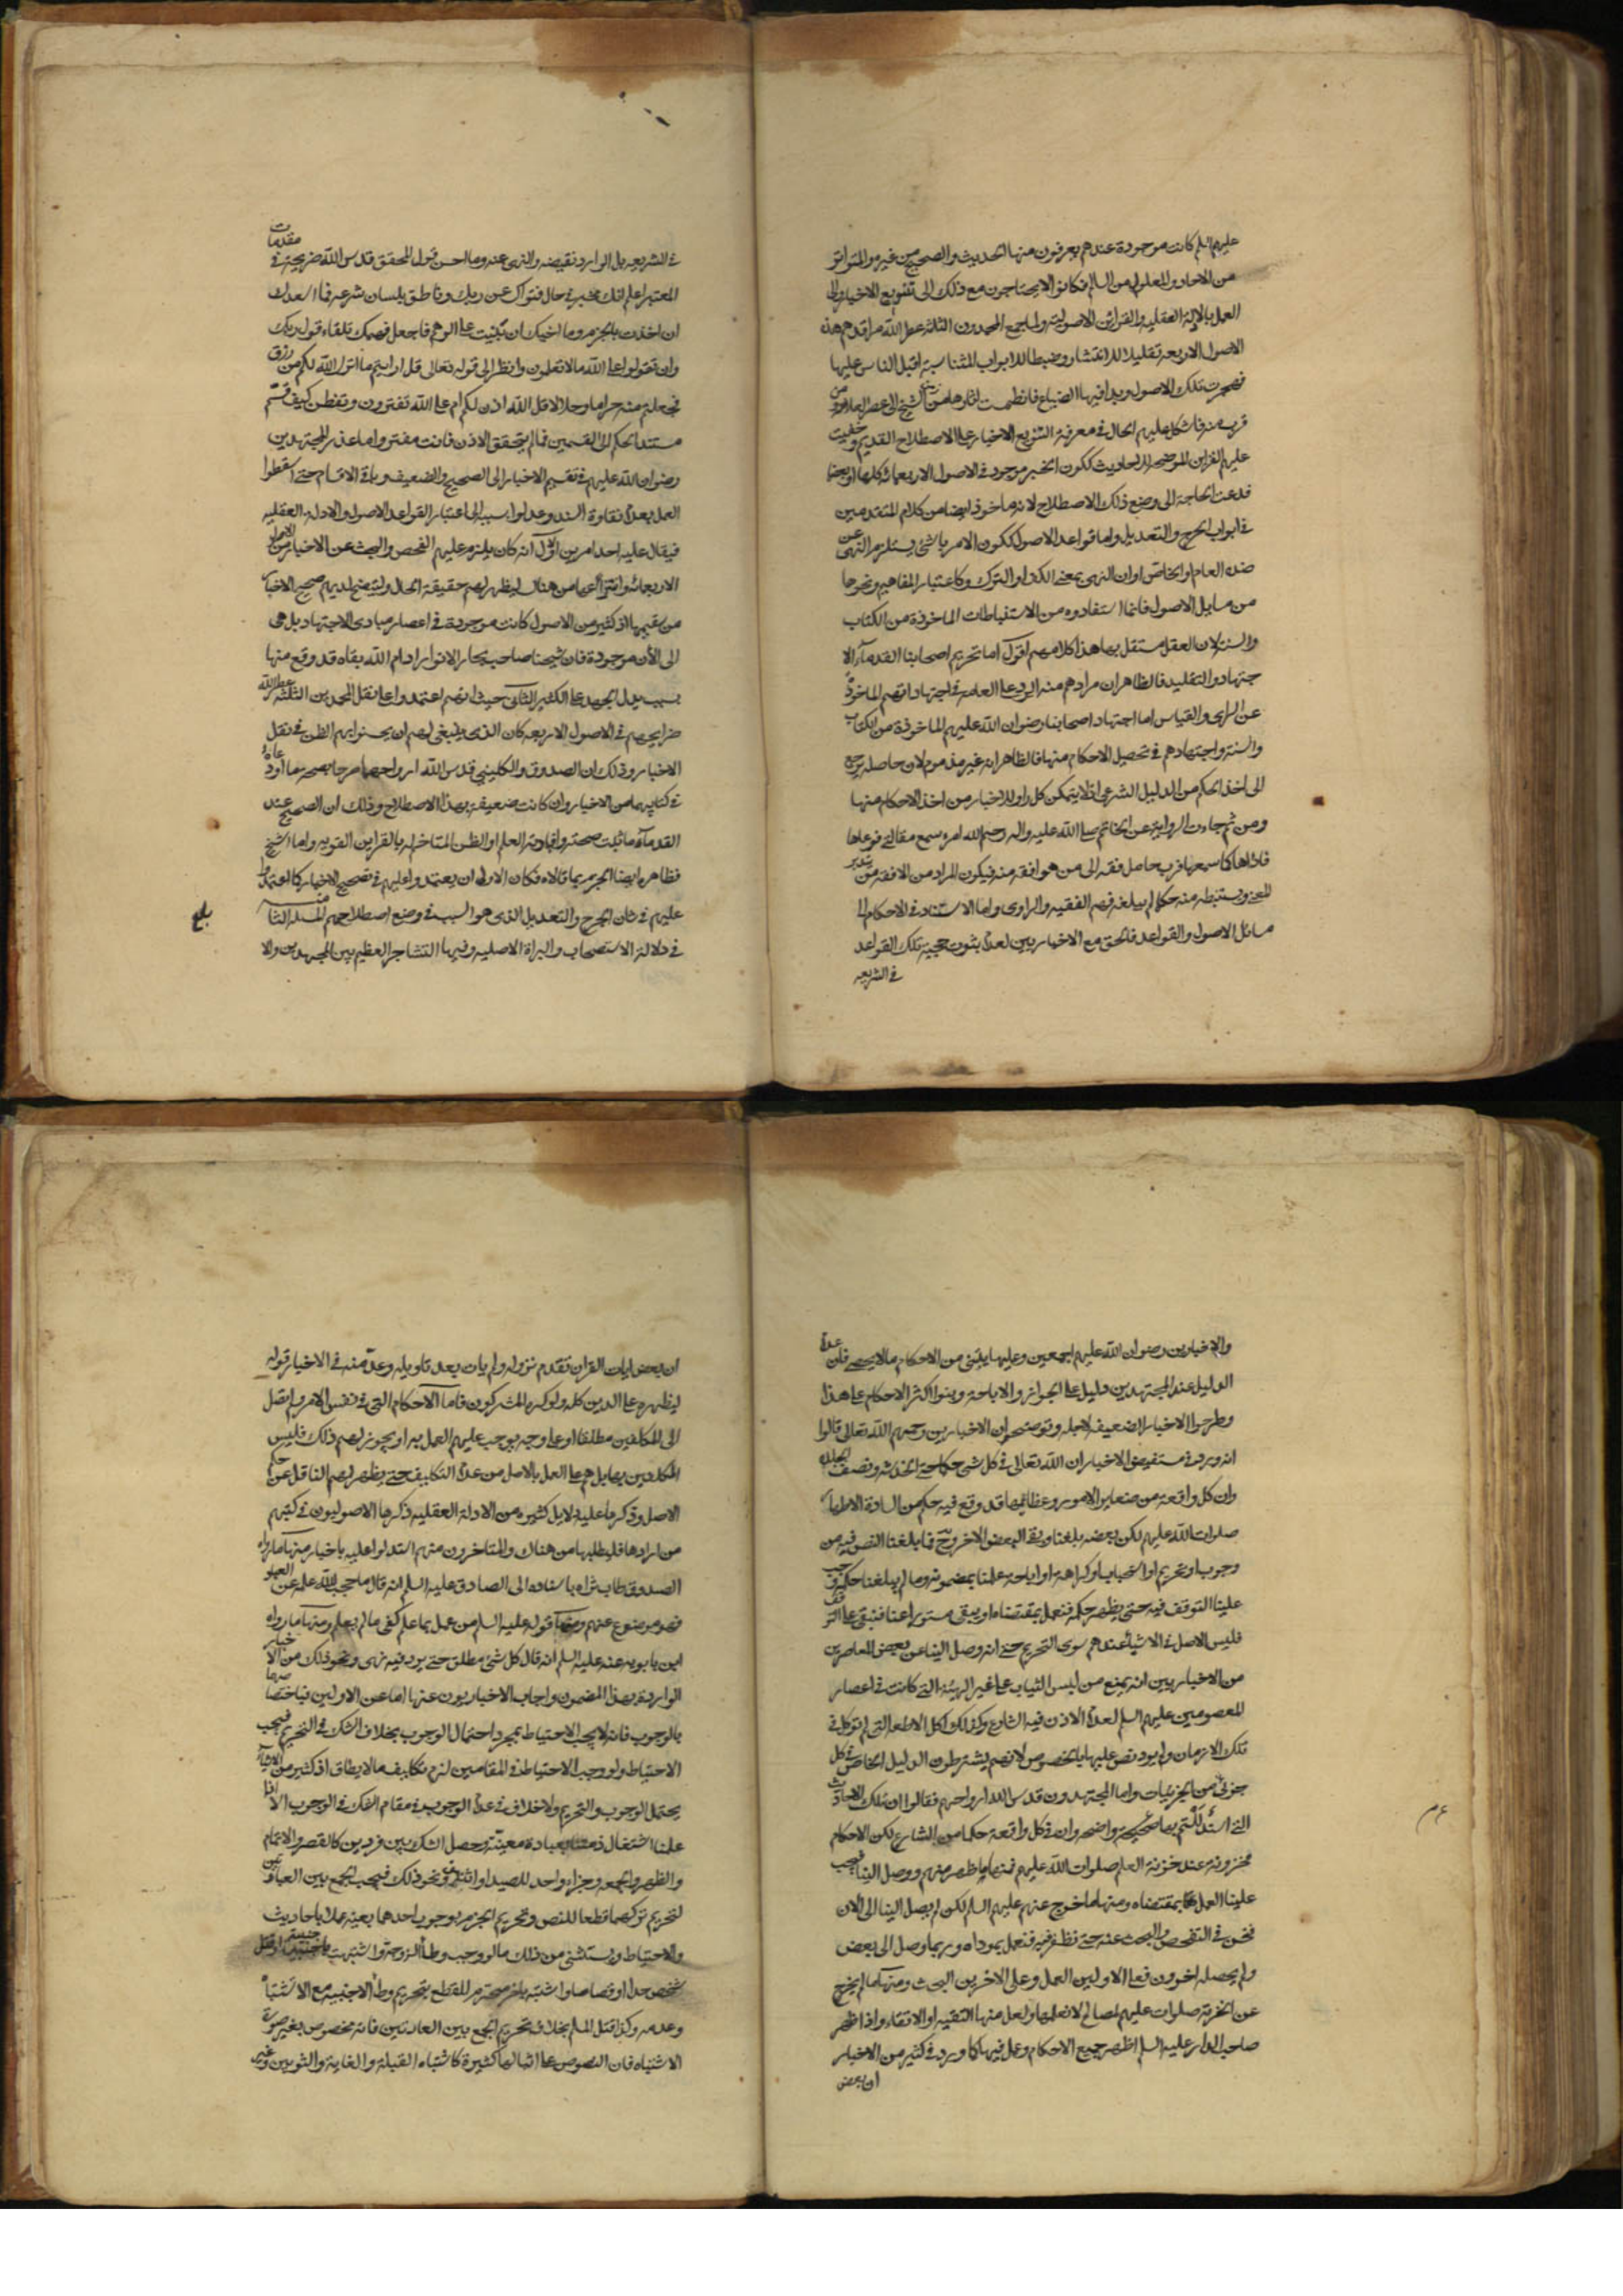 عليهم السلم كانت موجودة عندهم يعرفون منها الحديث والصحيح من غيره والمتواتر
من الاحاد والمعلول من السالم فكانوا لا يحتاجون مع ذلك الى تنويع الاخبار والى
العمل بالادلة العقليه والقراين الاصوليه ولما جمع المحمدون الثلثه عطر الله مراقدهم هذه
الاصول الاربعه تقليلا للانتشار وضبطا للابواب المتناسبة اقبل الناس عليها
فهجرت تلك الاصول وبدا فيها الضياع فانطمست اثارها من زمن الشيخ الى عصر العلامه ومن
قرب منه فاشكل عليهم الحال في معرفة التنويع الاخبار على الاصطلاح القديم وخفيت
عليهم القراين الموضحه للاحاديث ككون الخبر موجود في الاصول الاربعمائه كلها او بعضها
فدعت الحاجة الى وضع ذلك الاصطلاح لانه ماخوذ ايضا من كلام المتقدمين
في ابواب الجرح والتعديل واما قواعد الاصول ككون الامر بالشئ يستلزم النهى عن
ضده العام او الخاص او ان النهى بمعنى الكف او الترك وكاعتبار المفاهيم ونحوها
من مسايل الاصول فانما استفادوه من الاستنباطات الماخوذة من الكتاب
والسنة لان العقل مستقل بها هذا كلامهم اقول اما تحريم اصحابنا القدماء الا
جتهاد والتقليد فالظاهر ان مرادهم منه الرد على العامه في اجتهاداتهم الماخوذة
عن الراى والقياس اما اجتهاد اصحابنا رضوان الله عليهم الماخوذة من الكتاب
والسنة واجتهادهم في تحصيل الاحكام منها فالظاهر انه غير مذموم لان حاصله يرجع
الى اخذ الحكم من الدليل الشرعى اذ لا يتمكن كل راو للاخبار من اخذ الاحكام منها
ومن ثم جاءت الرواية عن الخاتم صلى الله عليه واله رحم الله امره سمع مقالتي فوعاها
فاداها كما سمعها فرب حامل فقه الى من هو افقه منه فيكون المراد من الافقه من تدبر
المعنى ويستنبط منه حكما لم يبلغه فهم الفقيه والراوى واما الاستناد في الاحكام الى
مسائل الاصول والقواعد فالحق مع الاخباريين لعدم ثبوت حجية تلك القواعد
في الشريعه
في الشريعه بل الوارد نقيضه والنهى عنه وما احسن قول المحقق قدس الله ضريحه في مقدمات
المعتبر اعلم انك مخبر في حال فتواك عن ربك وناطق بلسان شرعه فما اسعدك
ان اخذت بالجزم وما اخيبك ان بنيت على الوهم فاجعل فهمك تلقاء قول ربك
وان تقولوا على الله ما لا تعلمون وانظر الى قوله تعالى قل ارايتم ما انزل الله لكم من رزق
فجعلتم منه حراما وحلالا قل الله اذن لكم ام على الله تفترون وتفطن كيف قسم
مستند الحكم الى القسمين فما لم يتحقق الاذن فانت مفتر واما عذر المجتهدين
رضوان الله عليهم في تقسيم الاخبار الى الصحيح والضعيف وباقي الاقسام حتى اسقطوا
العمل بعدم نقاوة السند وعدلوا بسببه الى اعتبار القواعد الاصول والادلة العقليه
فيقال عليه احد امرين الاول انه كان يلزم عليهم الفحص والبحث عن الاخبار من الاصول
الاربعمائه وانتزاعها من هناك ليظهر لهم حقيقة الحال وليتضح لديهم صحيح الاخبار
من سقيمها اذ كثير من الاصول كانت موجودة في اعصار مبادى الاجتهاد بل هى
الى الأن موجودة فان شيخنا صاحب بحار الانوار ادام الله بقاه قد وقع منها
بسبب بذل الجهد على الكثير الثانى حيث انهم اعتمدوا على نقل المحمدين الثلثه عطر الله
ضرايحهم في الاصول الاربعه كان الذى ينبغى لهم ان يحسنوا بهم الظن في نقل
الاخبار وذلك ان الصدوق والكلينى قدس الله ارواحهما صرحا بصحة ما اودعاه
في كتابيهما من الاخبار وان كانت ضعيفة بهذا الاصطلاح وذلك ان الصحيح عند
القدماء ما ثبت صحته وافادته العلم او الظن المتاخم له بالقراين القويه واما الشيخ
فظاهره ايضا الجزم بما قالاه فكان الاولى ان يعتمدوا عليهم في تصحيح الاخبار كما اعتمدوا
عليهم في شان الجرح والتعديل الذى هو السبب في وضع اصطلاحهم المسئلة الثانية
في دلالة الاستصحاب والبراة الاصليه وفيها التشاجر العظيم بين المجتهدين والا
بلغ
والاخبارين رضوان الله عليهم اجمعين وعليها يبتنى من الاحكام ما لا يحصى فان عدم
الدليل عند المجتهدين دليل على الجواز والاباحة وبنوا اكثر الاحكام على هذا
وطرحوا الاخبار الضعيفه لاجله وتوضيحه ان الاخباريين رحمهم الله تعالى قالوا
انه ورد في مستفيض الاخبار ان الله تعالى في كل شئ حكما حتى الخدشه ونصف الجلده
وان كل واقعة من صغاير الامور وعظائمها قد وقع فيه حكم من السادة الاطهار
صلوات الله عليهم لكن بعضه بلغنا وبقى البعض الاخر وح فما بلغنا النص فيه من
وجوب او تحريم او استحباب او كراهة او اباحة علمنا بمضمونه وما لم يبلغنا حكمه وجب
علينا التوقف فيه حتى يظهر حكمه فنعمل بمقتضاه او يبقى مستورا عنا فنبقى على التوقف
فليس الاصل في الاشياء عندهم سوى التحريم حتى انه وصل الينا عن بعض المعاصرين
من الاخباريين انه يمنع من لبس الثياب على غير الهيئة التى كانت في اعصار
المعصومين عليهم السلم لعدم الاذن فيه الشارع وكذلك اكل الاطعمه التى لم تؤكل في
تلك الازمان ولم يرد نص عليها بالخصوص لانهم يشترطون الدليل الخاص في كل
جزئى من الجزئيات واما المجتهدون قدس الله ارواحهم فقالوا ان تلك الاحاديث
التى استدللتم بها صحيحة واضحه وان في كل واقعة حكما من الشارع لكن الاحكام
مخزونة عند خزنة العلم صلوات الله عليهم فمنها ما ظهر منهم ووصل الينا فيجب
علينا العمل بمقتضاه ومنها ما خرج عنهم عليهم السلم لكن لم يصل الينا الى الان
فنحن في التفحص والبحث عنه حتى نظفر فيه فنعمل بموداه وربما وصل الى بعض
ولم يحصله اخرون فعلى الاولين العمل وعلى الاخرين البحث ومنها ما لم يخرج
عن الخزنة صلوات عليهم لمصالح لا نعلمها ولعل منها التقيه او الاتقاء واذا ظهر
صاحب الدار عليه السلم اظهر جميع الاحكام وعمل فيها كما ورد في كثير من الاخبار
ان بعض
ان بعض ايات القران تقدم نزوله ولم يات بعد تاويله وعد منه في الاخبار قوله
ليظهره على الدين كله ولو كره المشركون فاما الاحكام التى في نفس الامر ولم تصل
الى المكلفين مطلقا او على وجه يوجب عليهم العمل به او يجوز لهم ذلك فليس
المكلفين بها بل هم على العمل بالاصل من عدم التكليف حتى يظهر لهم الناقل عن حكم
الاصل وذكر ما عليه دلايل كثيره من الادلة العقليه ذكرها الاصوليون في كتبهم
من ارادها فليطلبها من هناك والمتاخرون منهم استدلوا عليه باخبار منها ما رواه
الصدوق طاب ثراه باسناده الى الصادق عليه السلم انه قال ما حجب الله علمه عن العباد
فهو موضوع عنهم ومنها قوله عليه السلم من عمل بما علم كفى ما لم يعلم ومنها ما رواه
ابن بابويه عنه عليه السلم انه قال كل شئ مطلق حتى يرد فيه نهى ونحو ذلك من الاخبار
الواردة بهذا المضمون واجاب الاخباريون عنها اما عن الاولين فباختصاصهما
بالوجوب فانه لا يجب الاحتياط بمجرد احتمال الوجوب بخلاف الشك في التحريم فيجب
الاحتياط ولو وجب الاحتياط في المقامين لزم تكليف ما لا يطاق اذ كثير من الاشياء
يحتمل الوجوب والتحريم ولا خلاف في عدم الوجوب في مقام الشك في الوجوب الا اذا
علمنا اشتغال ذمتنا بعبادة معينة وحصل الشك بين فردين كالقصر والاتمام
والظهر والجمعه وجزاء واحد للصيد او اثنين ونحو ذلك فيجب الجمع بين العبادتين
لتحريم تركهما قطعا للنص وتحريم الجزم بوجوب احدهما بعينه عملا باحاديث
والاحتياط ويستثنى من ذلك ما لو وجب وطأ الزوجة واشتبهت باجنبية او قتل
شخص حدا او قصاصا واشتبه باخر محترم للقطع بتحريم وطأ الاجنبيه مع الاشتباه
وعدمه وكذا قتل المسلم بخلاف تحريم الجمع بين العبادتين فانه مخصوص بغير صورة
الاشتباه فان النصوص على امثالها كثيرة كاشتباه القبلة والفايتة والثوبين وغير